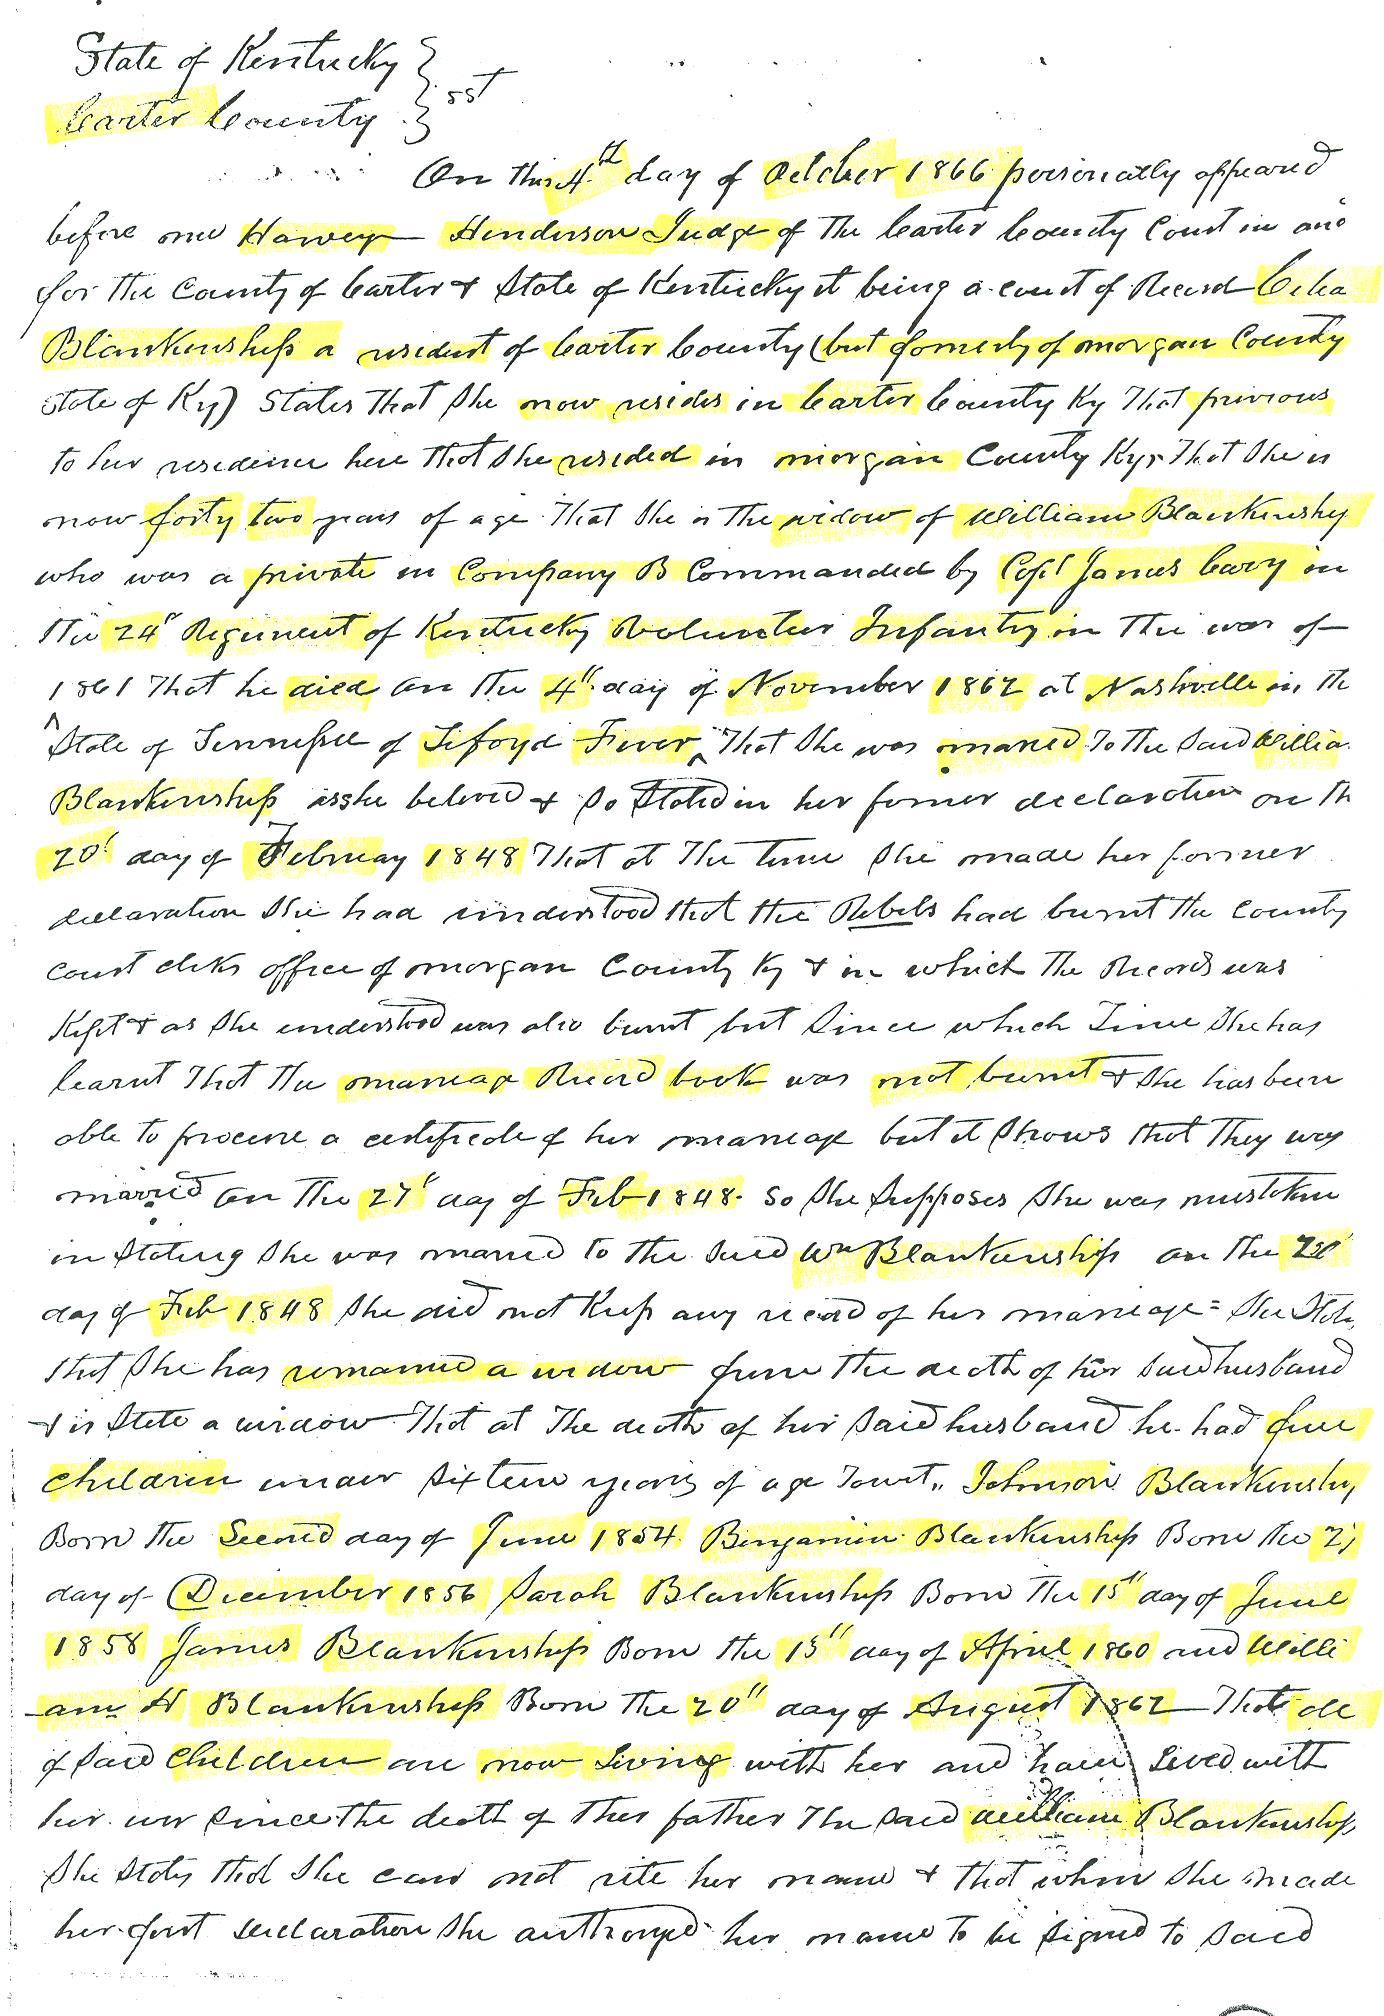 State of Kentucky
Carter County } sst
On this 4th day of October 1866 personally appeared
before me Harvey Henderson Judge of the Carter County Court in and
for the County of Carter & State of Kentucky it being a court of Record Celia
Blankenship a resident of Carter County (but formerly of morgan County
State of Ky) States that she now resides in Carter County Ky That privious
to her residence here that she resided in morgan County Ky, That she is
now forty two years of age That she is the widow of William Blankenship
who was a private in Company B Commanded by Capt James Cary in
the 24" Regiment of Kentucky Volunteer Infantry in the war of
1861 That he died on the 4" day of November 1862 at Nashville in the
State of Tennessee of Tifoyd Fever, That she was married to the said Willia
Blankenship as she believed & so stated in her former declaration on th
20" day of February 1848 That at the time she made her former
declaration she had understood that the Rebels had burnt the county
court clks office of morgan County Ky & in which the Records was
Kept & as she understood was also burnt but since which Time she has
learnt that the marriage Record book was not burnt & she has been
able to procure a certificate of her marriage but it shows that they was
married on the 27" day of Feb 1848. so she supposes she was mistaken
in stating she was married to the said Wm Blankenship on the 20"
day of Feb 1848 she did not Keep any record of her marriage = she State,
that she has remained a widow from the death of her said husband
& is still a widow That at the death of her said husband he had five
children under sixteen years of age Towit,, Johnson Blankenship
Born the Second day of June 1854 Bengamin Blankenship Born the 2
day of December 1856 Sarah Blankenship Born the 15" day of June
1858 James Blankenship Born the 13" day of April 1860 and Willi
am H Blankenship Born the 20" day of August 1862 That all
of said children are now living with her and have lived with
her ever since the death of ther father the said William Blankenship
She states that she can not rite her name & that when she made
her first declaration she authorized her name to be signed to said